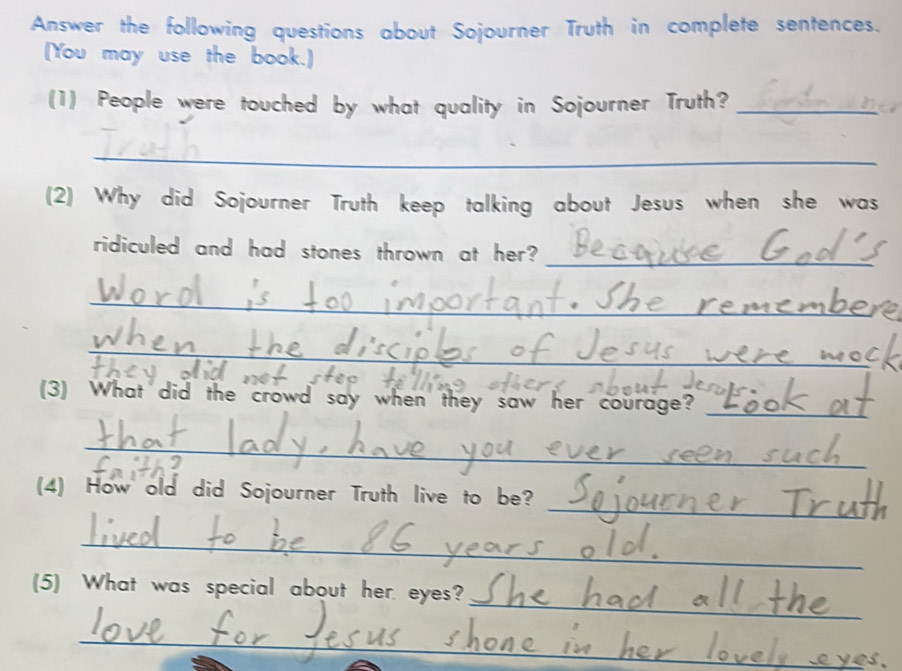 Answer the following questions about Sojourner Truth in complete sentences.
(You may use the book.)
(1) People were touched by what quality in Sojourner Truth?
Truth
(2) Why did Sojourner Truth keep talking about Jesus when she was
ridiculed and had stones thrown at her? Because God's
Word is too important. She remembere
when the disciples of Jesus were mock
they did not stop telling others about Jesus.
(3) What did the crowd say when they saw her courage? Look at
that lady, have you ever seen such
faith?
(4) How old did Sojourner Truth live to be? Sojourner Truth
lived to be 86 years old.
(5) What was special about her eyes? She had all the
love for Jesus shone in her lovely eyes.